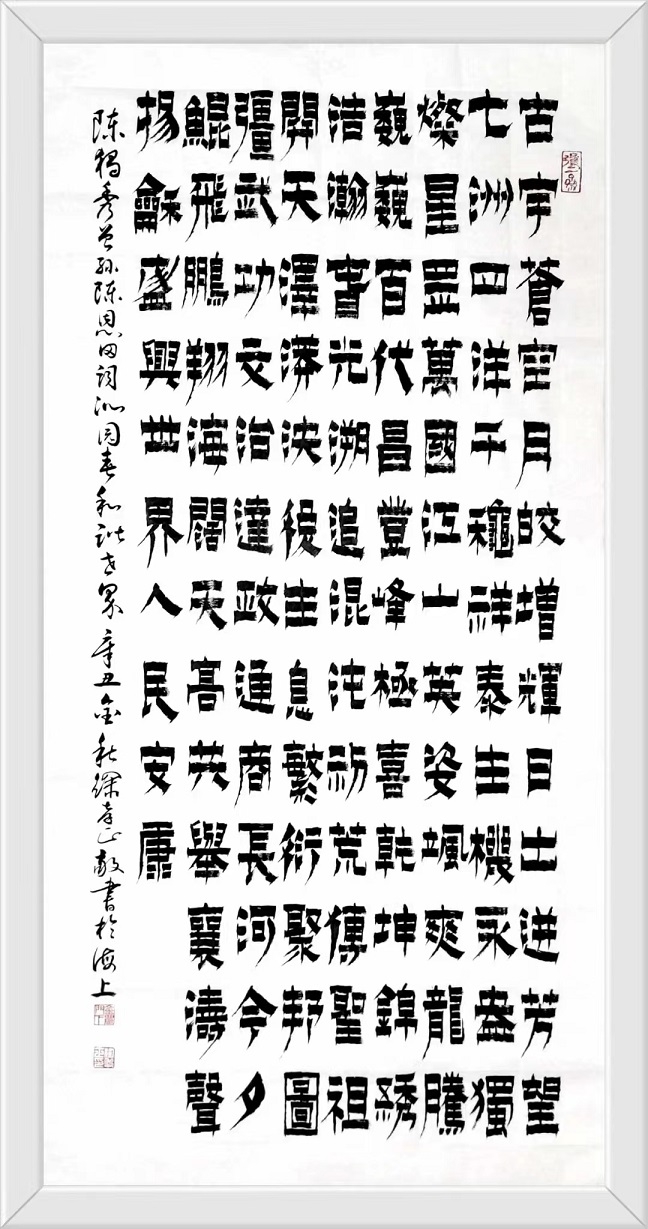 古宇蒼空月皎增輝日出迸芳望
七洲四洋千穐祥泰生機永盎獨
燦星罡萬國江山英姿颯爽龍騰
巍巍百代昌豐峰極喜乾坤錦綉
浩瀚書光溯追混沌衸荒傳聖祖
開天澤漭泱後主息繁衍聚邦圖
彊武功文治達政通商長河今夕
鯤飛鵬翔海闊天高共舉襄濤聲
揚龢盛興世界人民安康
陈独秀曾孙陈恩田词沁园春和谐世界 辛丑金秋孝山敬書於海上